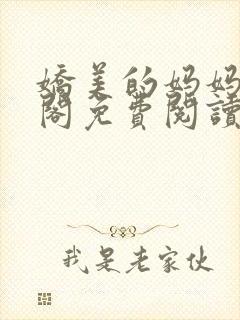 嬌美的妈妈
閣免費閱讀
我是老家伙